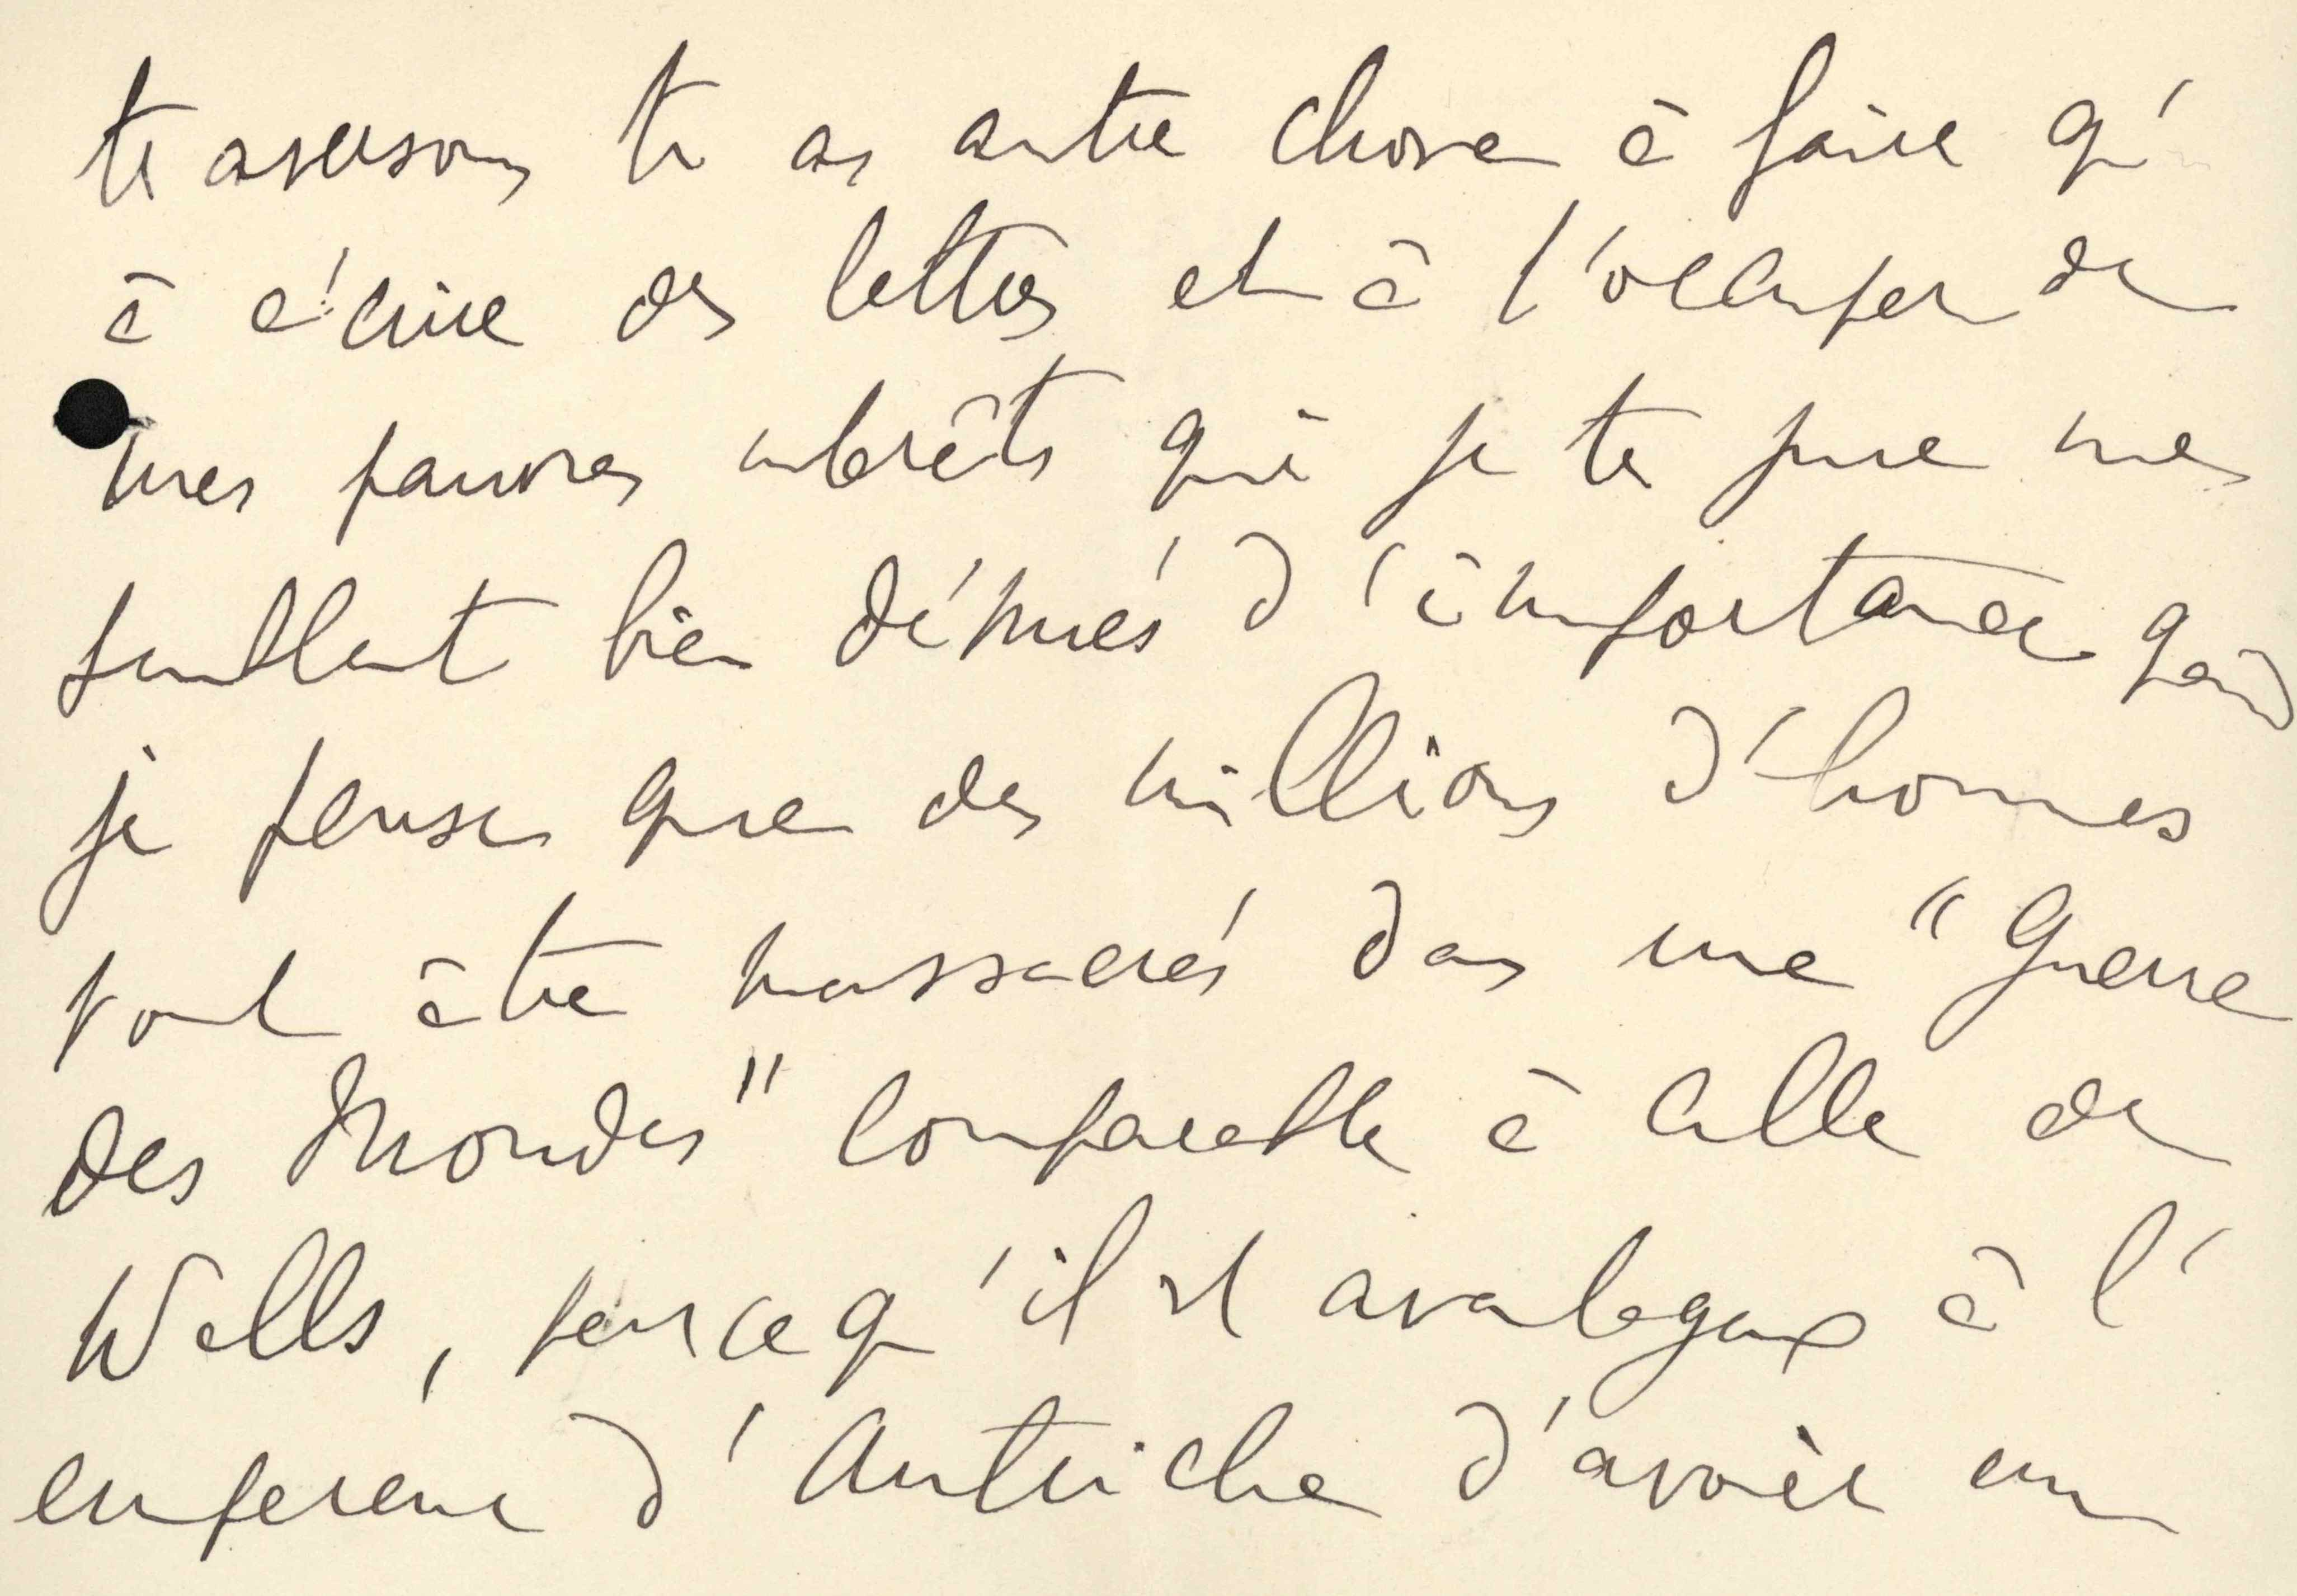 traversons tu as autre chose à faire qu'
à écrire des lettres et à t'occuper de
mes pauvres intérêts qui je te jure me
semblent bien dénués d'importance quand
je pense que des millions d'hommes
vont être massacrés dans une "Guerre
des Mondes" comparable à celle de
Wells, parce qu'il est avantageux à l'
empereur d'Autriche d'avoir un